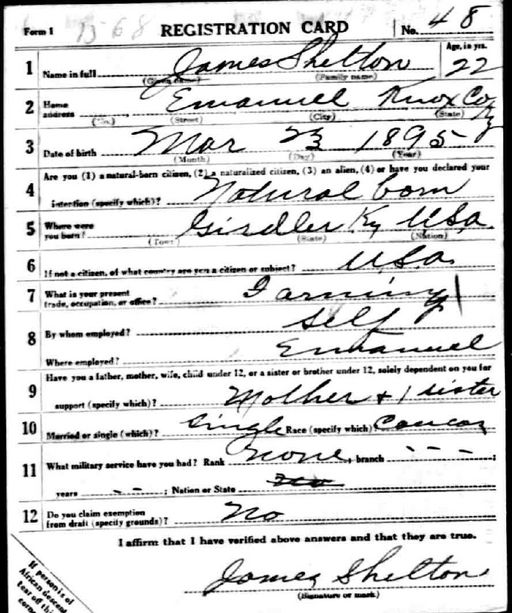 Form 1 REGISTRATION CARD No. 48
1 Name in full James Shelton Age, in yrs. 22
(Given name) (Family name)
2 Home address Emanuel Knox Co Ky
(No.) (Street) (City) (State)
3 Date of birth Mar 23 1895
(Month) (Day) (Year)
Are you (1) a natural-born citizen, (2) a naturalized citizen, (3) an alien, (4) or have you declared your
4 intention (specify which)? Natural born
5 Where were you born? Girdler Ky USA
(Town) (State) (Nation)
6 If not a citizen, of what country are you a citizen or subject? U.S.a.
7 What is your present trade, occupation, or office? Farming
8 By whom employed? Self
Where employed? Emanuel
Have you a father, mother, wife, child under 12, or a sister or brother under 12, solely dependent on you for
9 support (specify which)? Mother + 1 sister
10 Married or single (which)? Single Race (specify which)? Caucas
11 What military service have you had? Rank none, branch - - - ;
years - - ; Nation or State
12 Do you claim exemption from draft (specify grounds)? No
I affirm that I have verified above answers and that they are true.
James Shelton
(Signature or mark)
If person is of
African descent
tear off this
corner